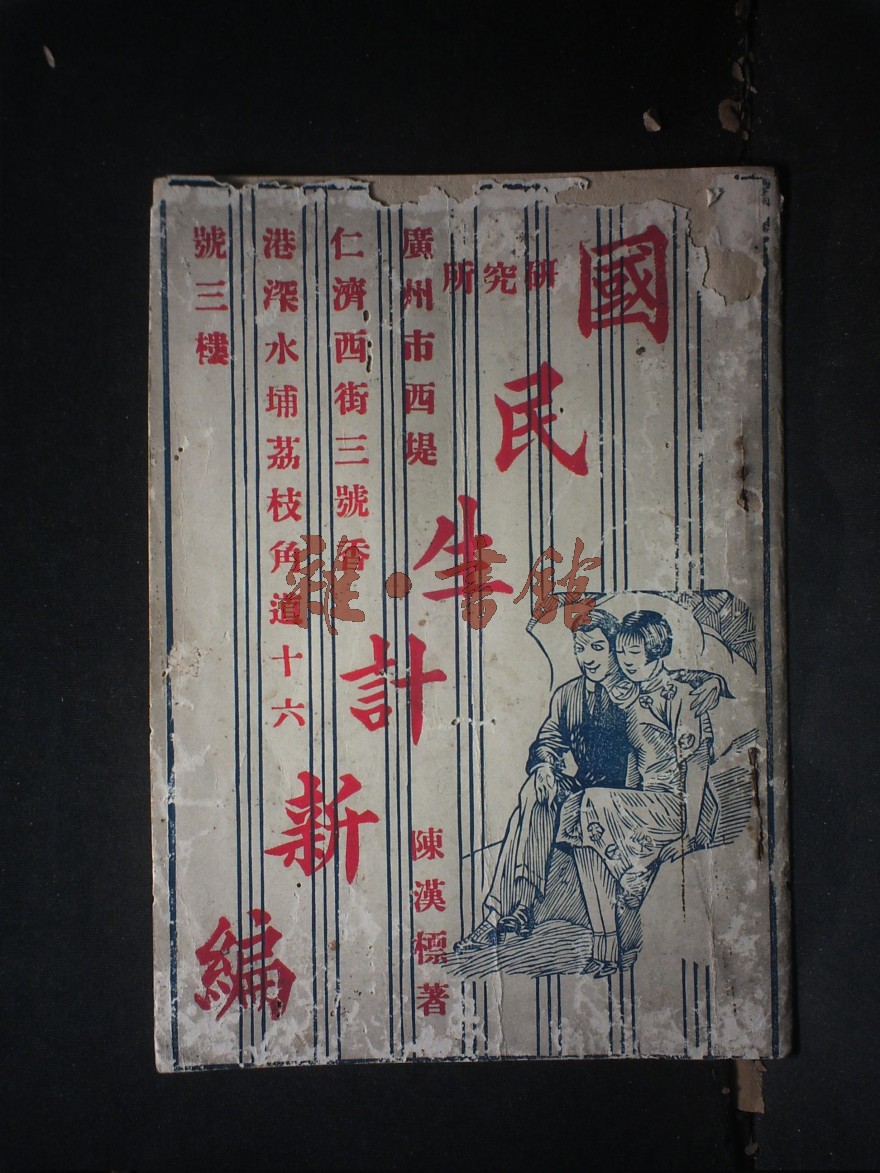 國民生計新編
研究所
廣州市西堤
仁濟西街三號香
港深水埔茘枝角道十六
號三樓
陳漢標著
雜·書館